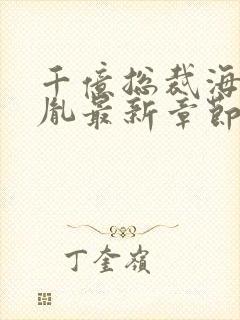 千億総裁海
胤最新章節
丁奎嶺